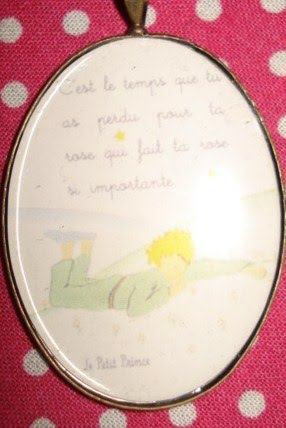 C'est le temps que tu
as perdu pour ta
rose qui fait ta rose
si importante
Le Petit Prince